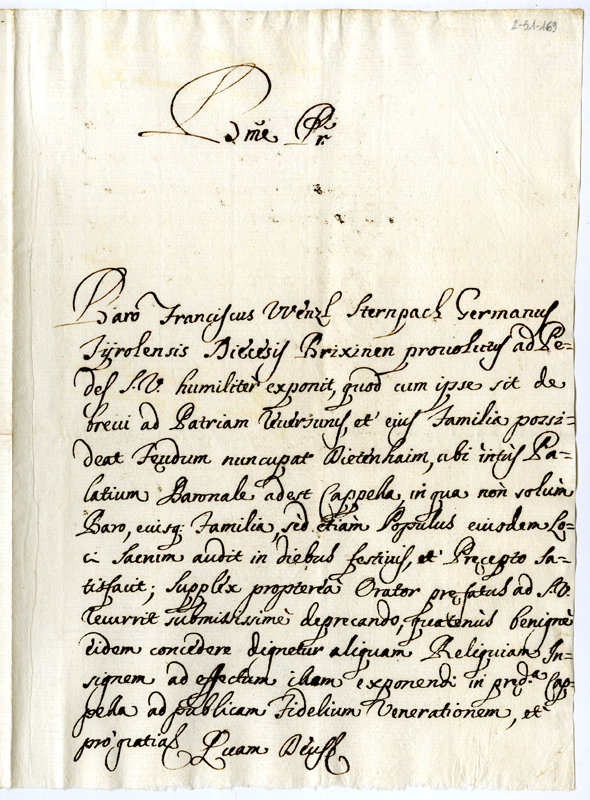 2-51-169
Bme Pr
Baro Franciscus Wenzl Sternpach Germanus
Tyrolensis Diecesis Brixinen provolutus ad Pe=
des S.V. humiliter exponit, quod cum ipse sit de
brevi ad Patriam reversurus, et eius Familia possi=
deat Feudum nuncupat Dietenhaim, ubi intus Pa=
latium Baronale adest Cappella, in qua non solum
Baro, eiusq; Familia, sed etiam Populus eiusdem Lo=
ci Sacrum audit in diebus festivis, et Precepto sa=
tisfacit; supplex propterea Orator prefatus ad S.V.
recurrit submississime deprecando, quatenus benigne
eidem concedere dignetur aliquam Reliquiam In=
signem ad effectum illam exponendi in pred.a Cap=
pella ad publicam Fidelium Venerationem, et
pro gratia Quam Deus